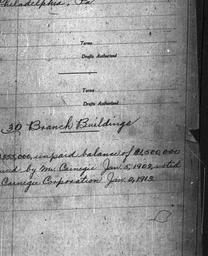 Philadelphia, Pa
Terms
Drafts Authorized
Terms
Drafts Authorized
30 Branch Buildings
unpaid balance of $1,500,000
by Mr. Carnegie Jan. 5, 1903, voted
Carnegie Corporation Jan. 2, 1913.